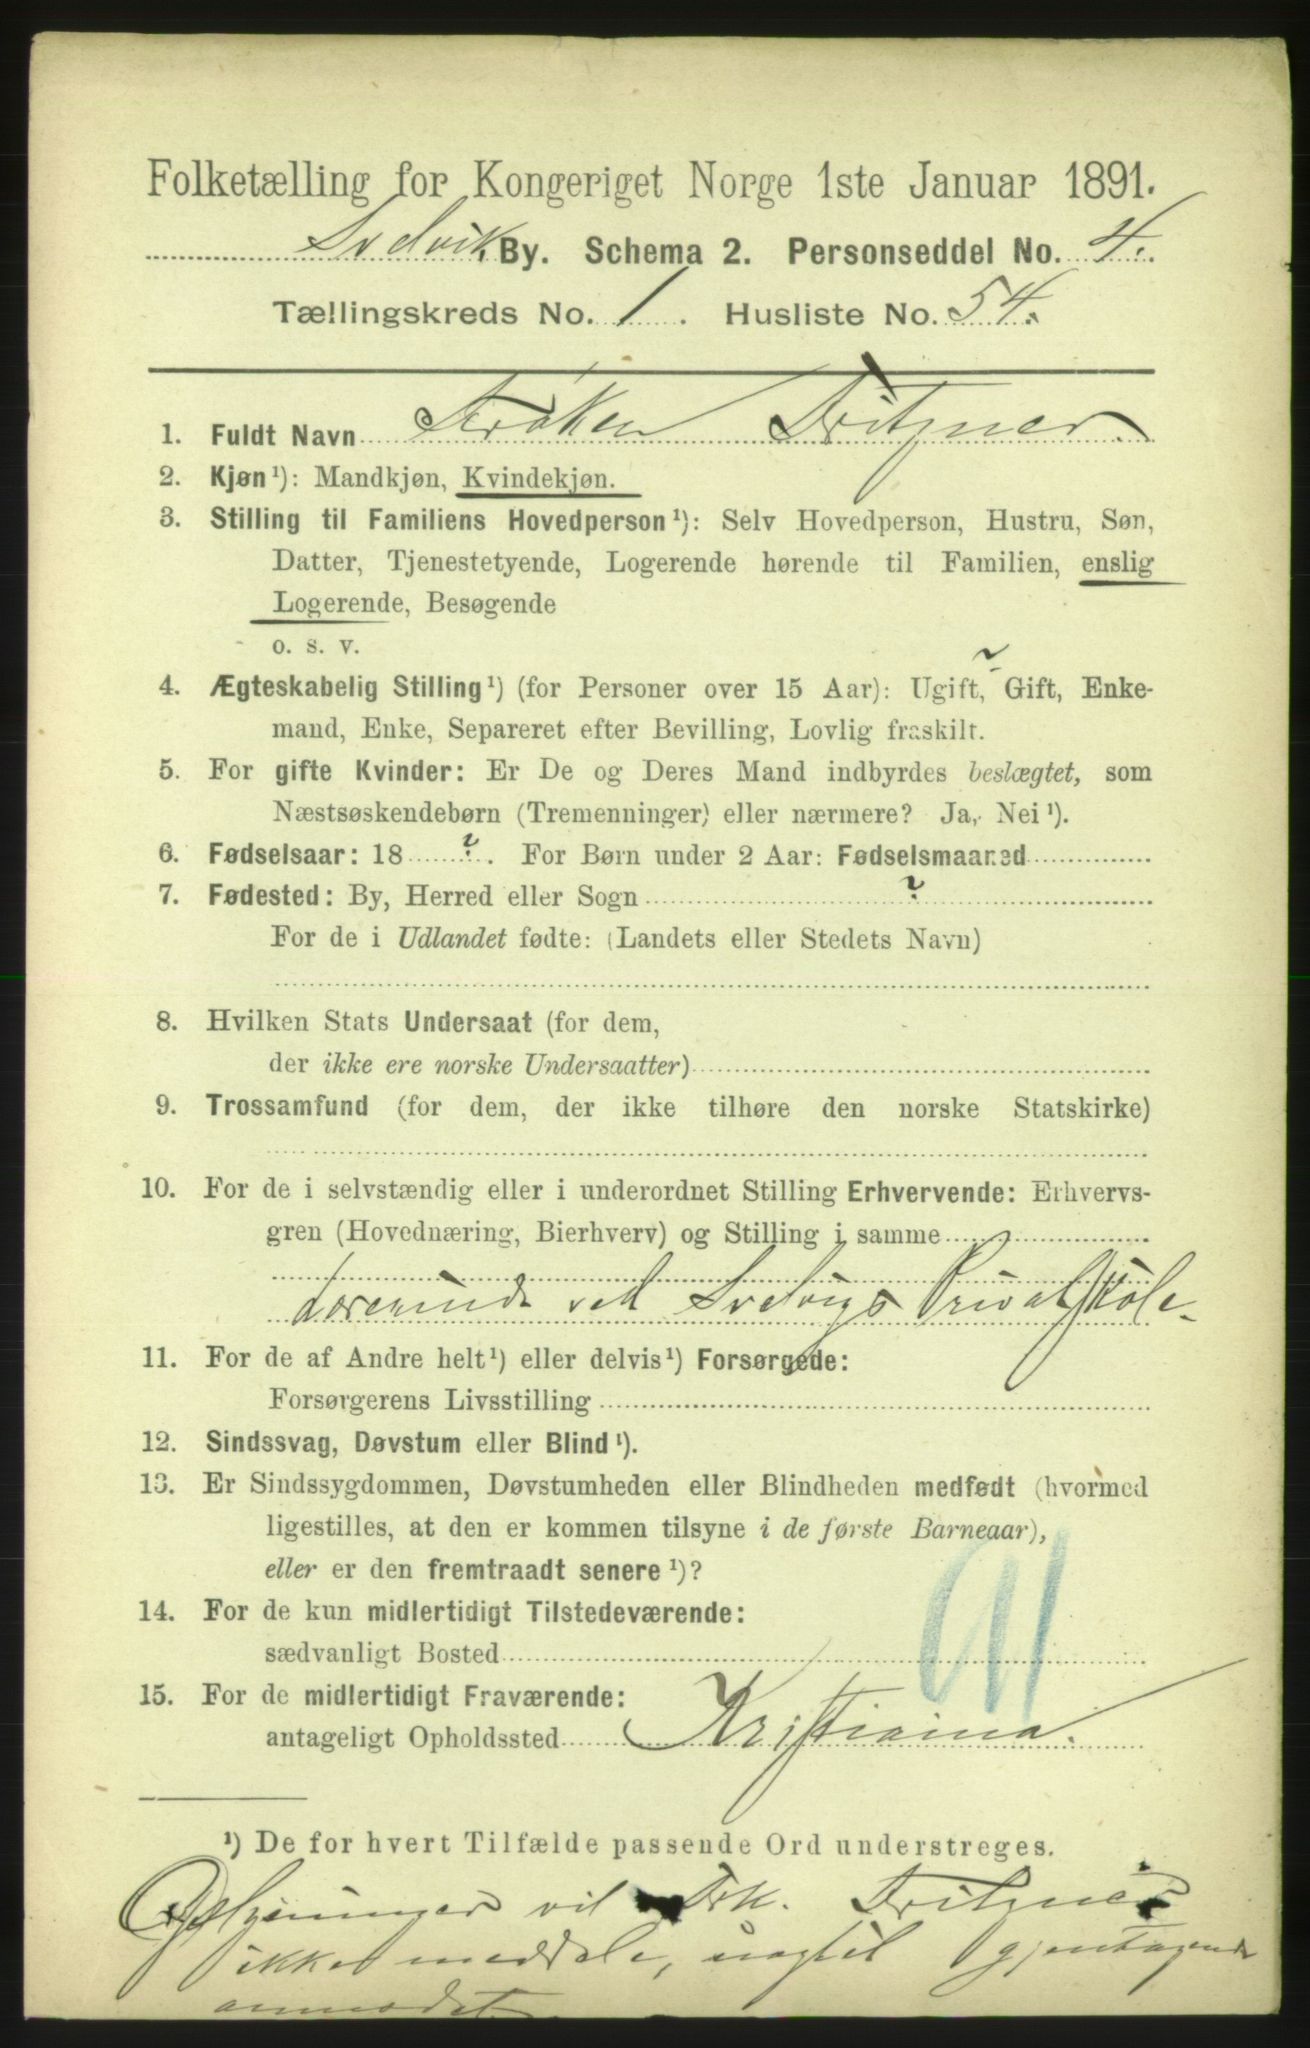 Folketælling for Kongeriget Norge 1ste Januar 1891.
Svelvik By. Schema 2. Personseddel No. 4.
Tællingskreds No. 1. Husliste No. 54.
1. Fuldt Navn Frøken Fritzner.
2. Kjøn ¹): Mandkjøn, Kvindekjøn.
3. Stilling til Familiens Hovedperson ¹): Selv Hovedperson, Hustru, Søn,
Datter, Tjenestetyende, Logerende hørende til Familien, enslig
Logerende, Besøgende
o. s. v.
?
4. Ægteskabelig Stilling ¹) (for Personer over 15 Aar): Ugift, Gift, Enke-
mand, Enke, Separeret efter Bevilling, Lovlig fraskilt.
5. For gifte Kvinder: Er De og Deres Mand indbyrdes beslægtet, som
Næstsøskendebørn (Tremenninger) eller nærmere? Ja, Nei ¹).
6. Fødselsaar: 18 ?. For Børn under 2 Aar: Fødselsmaaned
7. Fødested: By, Herred eller Sogn ?
For de i Udlandet fødte: (Landets eller Stedets Navn)
8. Hvilken Stats Undersaat (for dem,
der ikke ere norske Undersaatter)
9. Trossamfund (for dem, der ikke tilhøre den norske Statskirke)
10. For de i selvstændig eller i underordnet Stilling Erhvervende: Erhvervs-
gren (Hovednæring, Bierhverv) og Stilling i samme
Lærerinde ved Svelvigs Privatskole.
11. For de af Andre helt ¹) eller delvis ¹) Forsørgede:
Forsørgerens Livsstilling
12. Sindssvag, Døvstum eller Blind ¹).
13. Er Sindssygdommen, Døvstumheden eller Blindheden medfødt (hvormed
ligestilles, at den er kommen tilsyne i de første Barneaar),
eller er den fremtraadt senere ¹)?
14. For de kun midlertidigt Tilstedeværende:
sædvanligt Bosted
15. For de midlertidigt Fraværende:
antageligt Opholdssted Kristiania.
¹) De for hvert Tilfælde passende Ord understreges.
Oplysninger vil Frk. Fritzner
ikke meddele, uagtet gjentagende
anmodet.